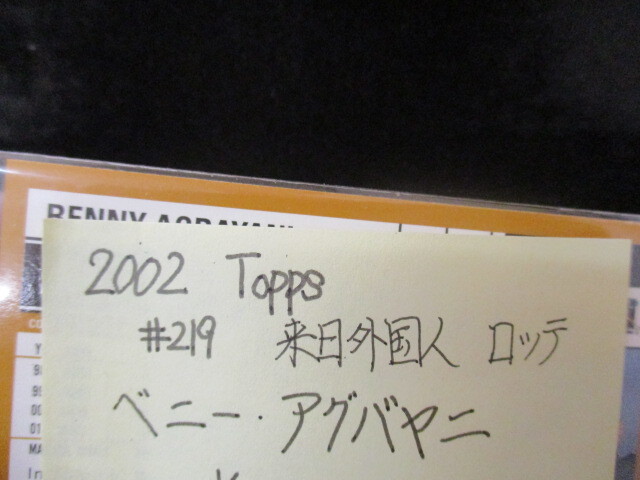 BENNY AGBAYANI
2002 Topps
#219 来日外国人 ロッテ
ベニー・アグバヤニ
Y
9
99
00
01
MA